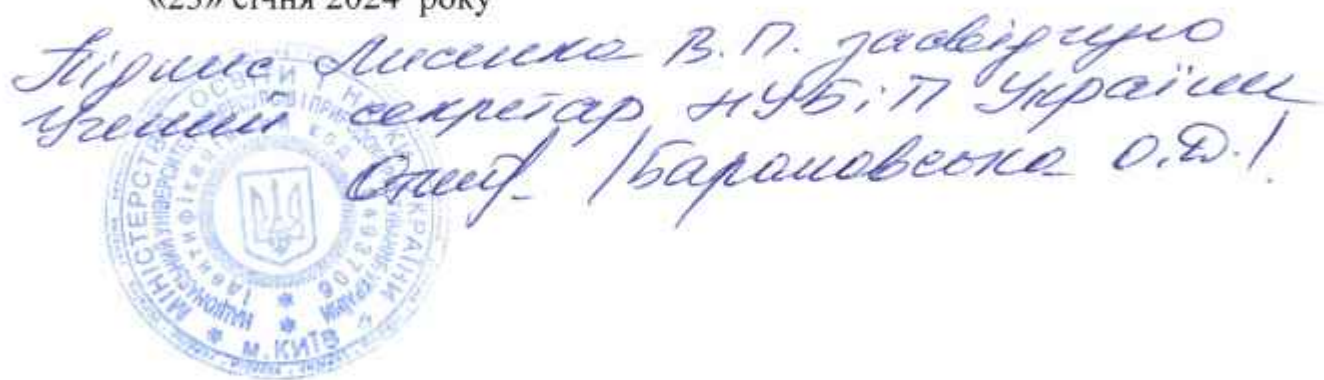 «23» січня 2024 року
Підпис Лисенка В.П. засвідчую
Учений секретар НУБіП України
/Барановська О.Д./
МІНІСТЕРСТВО ОСВІТИ І НАУКИ УКРАЇНИ
м. КИЇВ